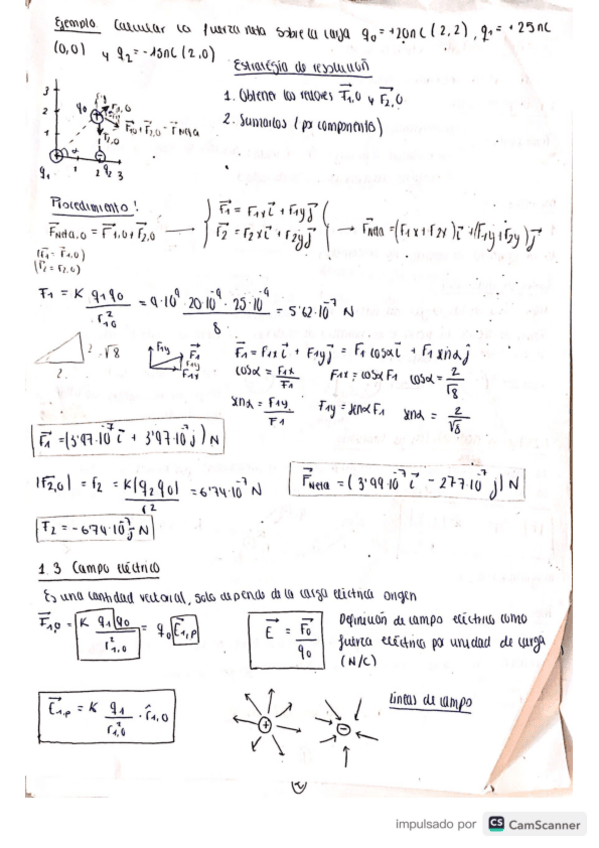 Ejemplo Calcular la fuerza neta sobre la carga q0 = +20nC (2,2), q1 = +25nC
(0,0) y q2 = -15nC (2,0)
Estrategia de resolución
1. Obtener los vectores F⃗1,0 y F⃗2,0
2. Sumarlos (por componentes)
3
2
1
q0
F1,0
F⃗1,0 + F⃗2,0 = F⃗Neta
F2,0
α
q1
1
2
q2
3
Procedimiento!
F⃗neta,0 = F⃗1,0 + F⃗2,0 → { F⃗1 = F1x i⃗ + F1y j⃗ F⃗2 = F2x i⃗ + F2y j⃗ { → F⃗neta = (F1x + F2x) i⃗ + (F1y + F2y) j⃗
(F⃗1 = F⃗1,0)
(F⃗2 = F⃗2,0)
F1 = K q1q0 / r²1,0 = 9·10⁹ · 20·10⁻⁹ · 25·10⁻⁹ / 8 = 5'62·10⁻⁷ N
2
√8
2
F1y
F⃗1
F1y
F1x
F⃗1 = F1x i⃗ + F1y j⃗ = F1 cosα i⃗ + F1 senα j⃗
cosα = F1x / F1 F1x = cosα F1 cosα = 2 / √8
senα = F1y / F1 F1y = senα F1 senα = 2 / √8
F⃗1 = (3'97·10⁻⁷ i⃗ + 3'97·10⁻⁷ j⃗) N
|F2,0| = F2 = K|q2 q0| / r² = 6'74·10⁻⁷ N
F⃗Neta = (3'99·10⁻⁷ i⃗ - 2'77·10⁻⁷ j⃗) N
F⃗2 = -6'74·10⁻⁷ j⃗ N
1.3 Campo eléctrico
Es una cantidad vectorial, solo depende de la carga eléctrica origen
F⃗1,0 = K q1 q0 / r²1,0 = q0 E⃗1,p
E⃗ = F⃗0 / q0
Definición de campo eléctrico como
fuerza eléctrica por unidad de carga
(N/C)
E⃗1,p = K q1 / r²1,0 · r̂1,0
+
-
líneas de campo
2
impulsado por CS CamScanner